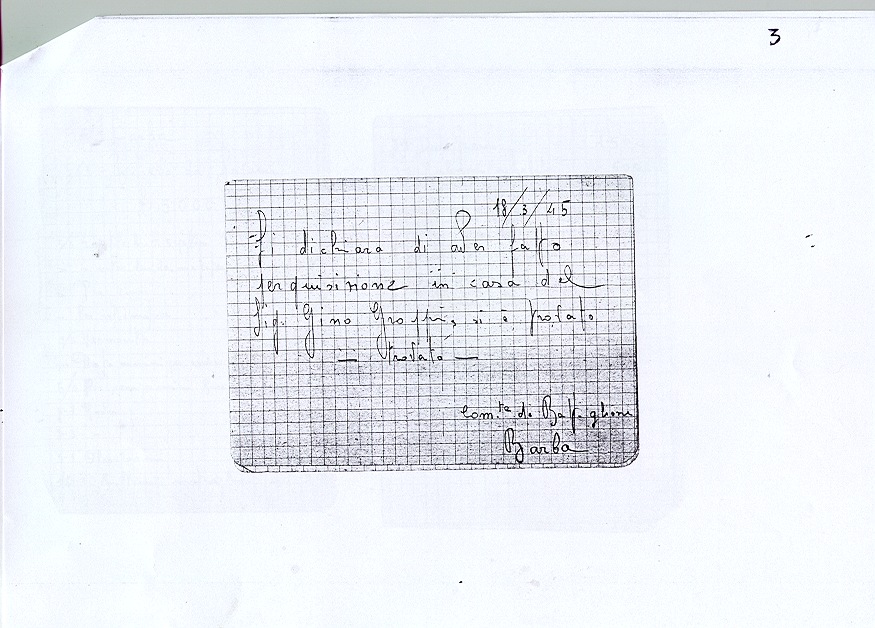 3
18/3/45
Si dichiara di aver fatto
perquisizione in casa del
Sig. Gino Groppi, si è trovato
— trovato —
Com.te di Battaglione
Barba